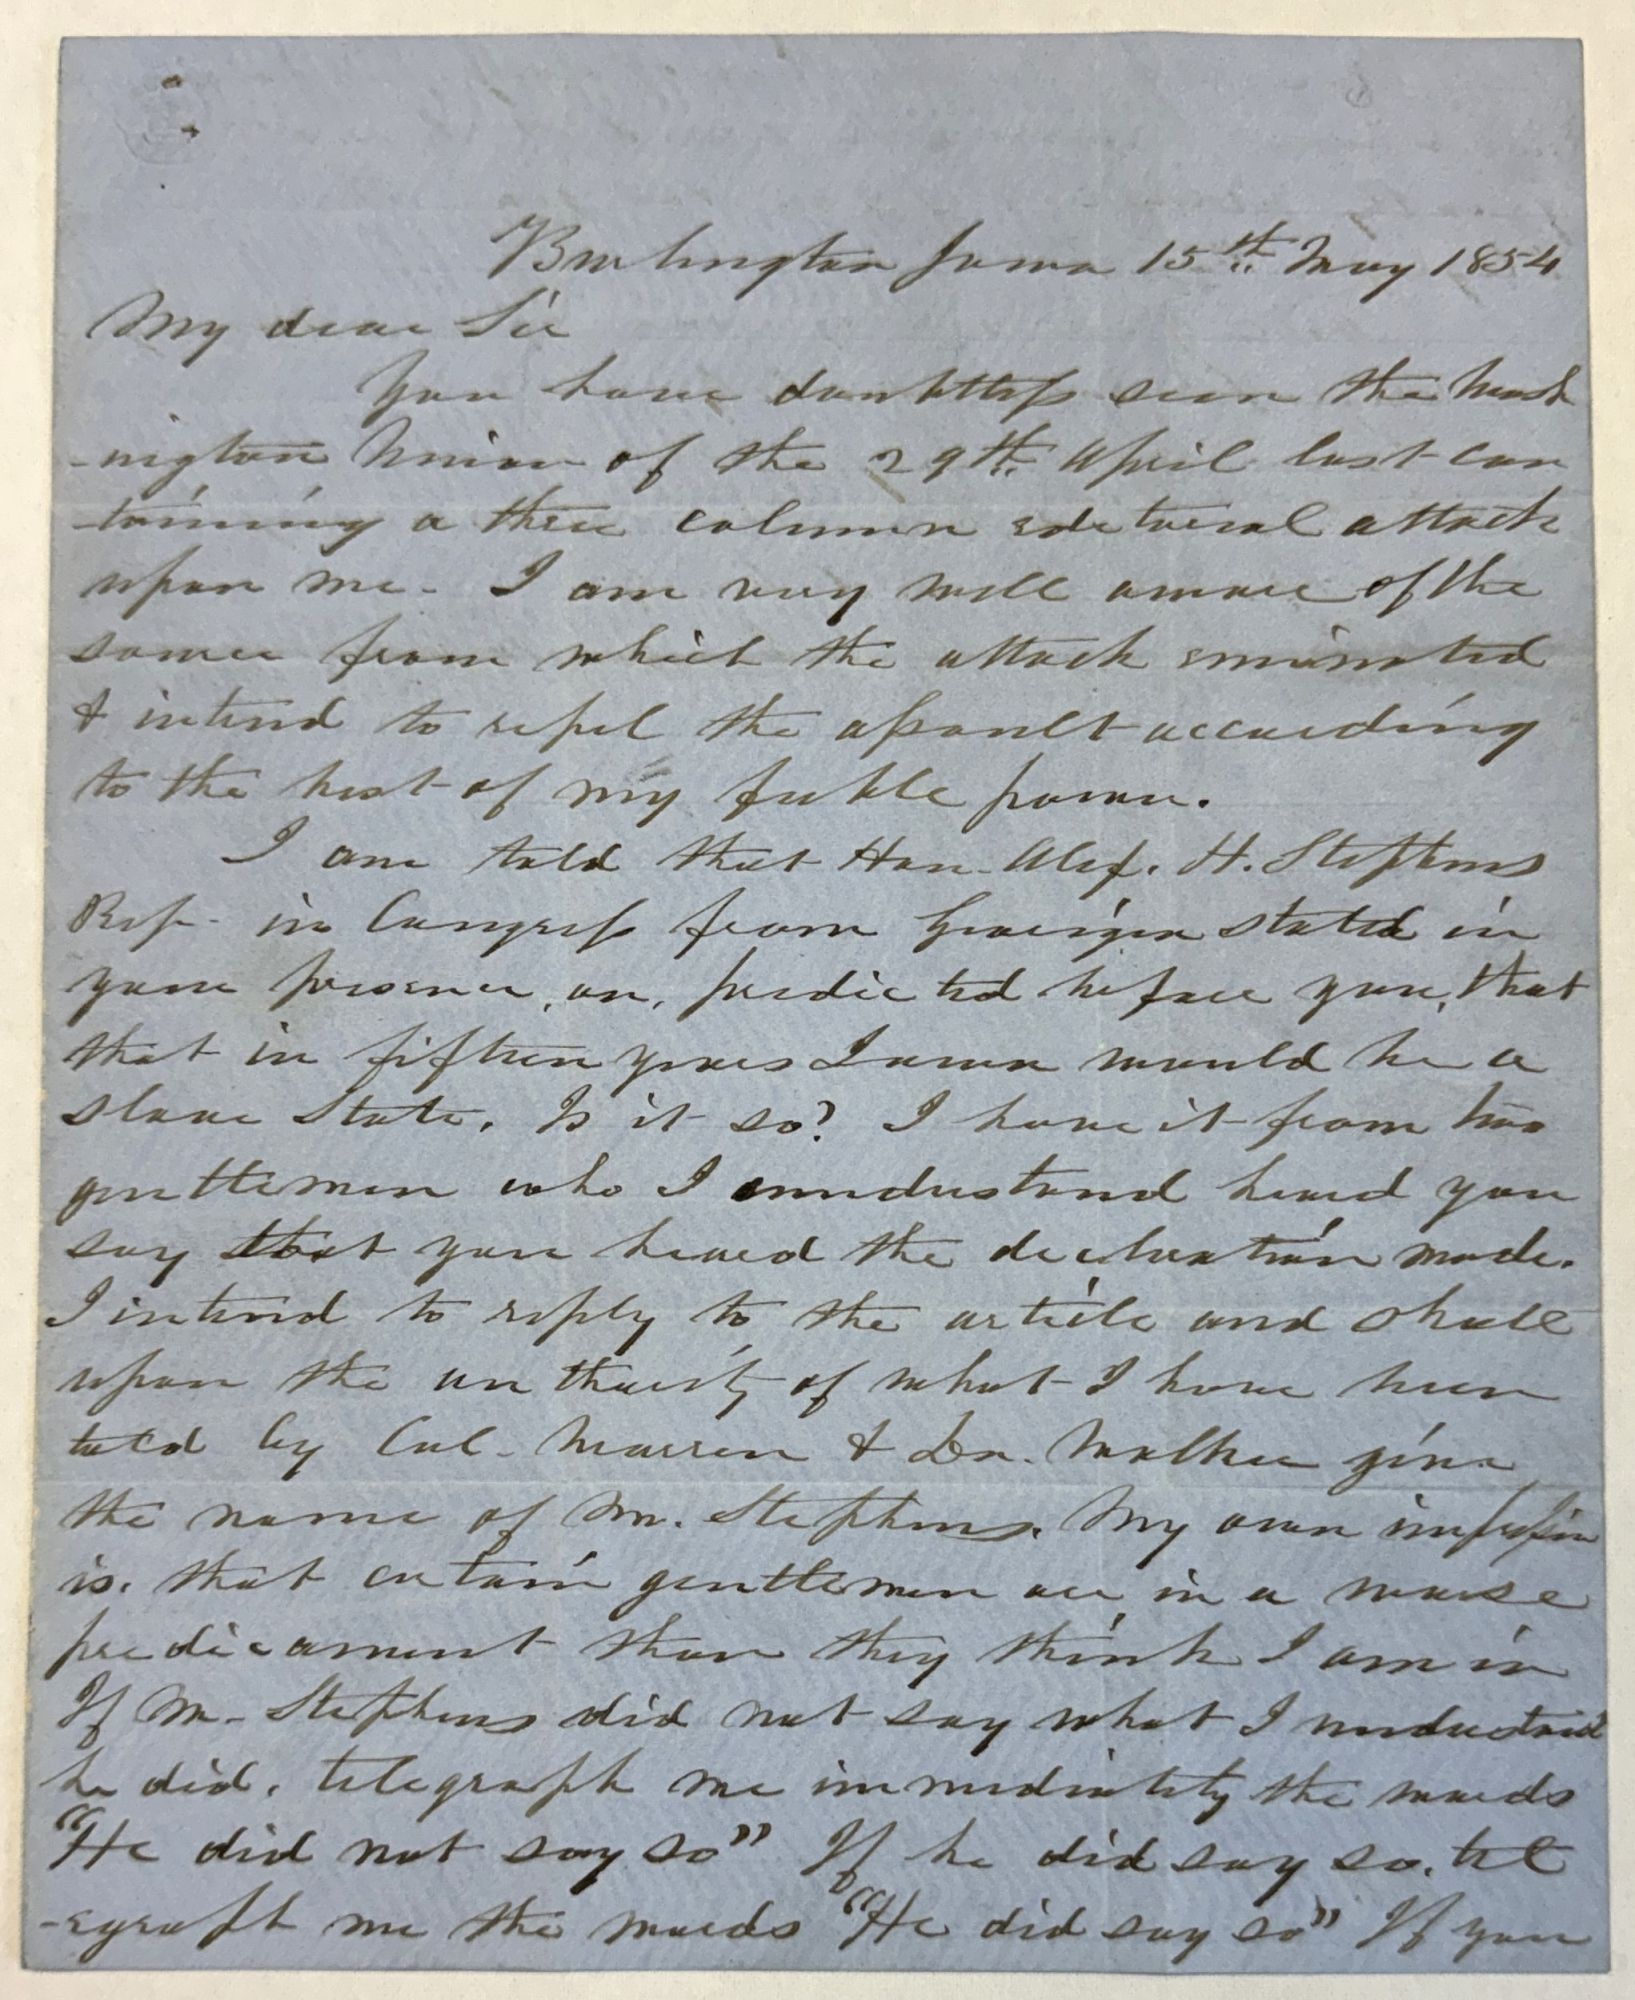 Burlington Iowa 15th May 1854
My dear Sir
You have doubtless seen the Wash
-ington Union of the 29th April last con
-taining a three column editorial attack
upon me. I am very well aware of the
source from which the attack eminated
& intend to repel the assault according
to the best of my feeble power.
I am told that Hon. Alex. H. Stephens
Rep. in Congress from Georgia stated in
your presence, or, predicted before you, that
that in fifteen years Iowa would be a
slave State. Is it so? I have it from two
gentlemen who I understand heard you
say that you heard the declaration made.
I intend to reply to the article and shall
upon the authority of what I have been
told by Col. Warren & Dr. Walker give
the name of Mr. Stephens. My own impression
is. that certain gentlemen are in a worse
predicament than they think I am in
If Mr. Stephens did not say what I understand
he did, telegraph me immediately the words
"He did not say so" If he did say so. tel
-egraph me the words "He did say so" If you